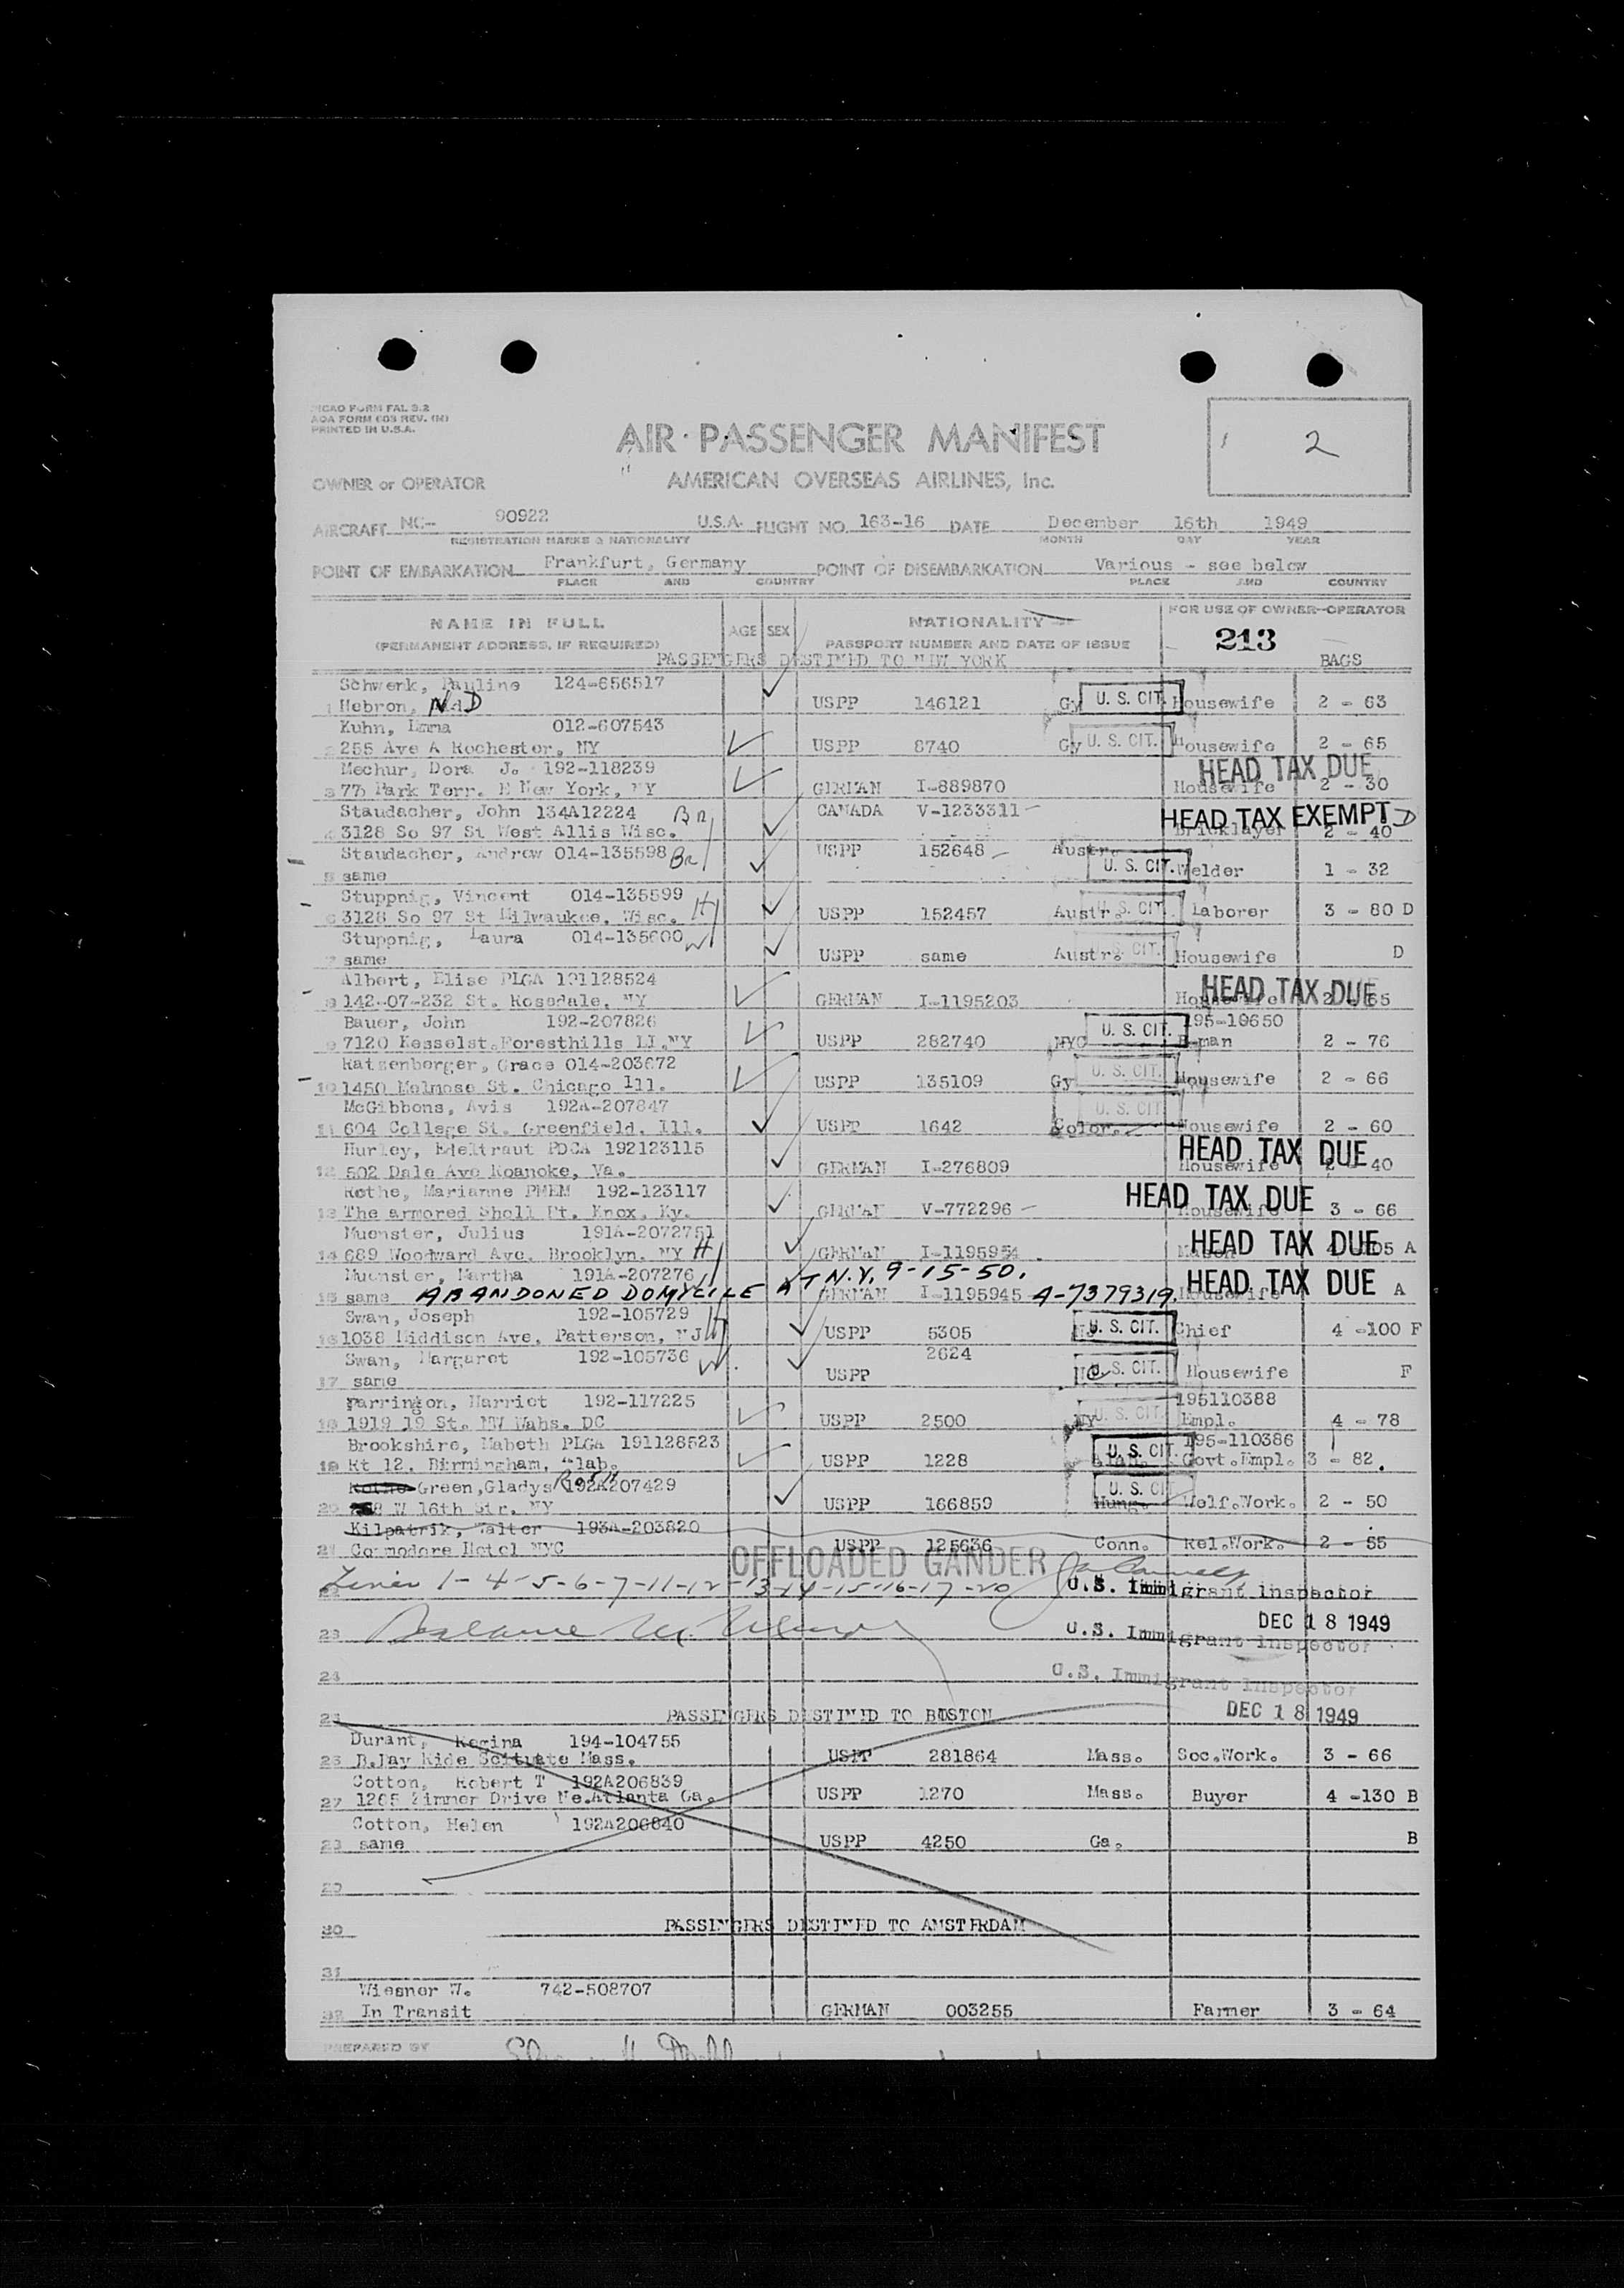 ICAO FORM FAL 3.2
AOA FORM 603 REV. (M)
PRINTED IN U.S.A.
AIR PASSENGER MANIFEST
2
OWNER or OPERATOR AMERICAN OVERSEAS AIRLINES, Inc.
AIRCRAFT NC- 90922 U.S.A. FLIGHT NO. 163-16 DATE December 16th 1949
REGISTRATION MARKS & NATIONALITY MONTH DAY YEAR
POINT OF EMBARKATION Frankfurt, Germany POINT OF DISEMBARKATION Various - see below
PLACE AND COUNTRY PLACE AND COUNTRY
NAME IN FULL AGE SEX NATIONALITY FOR USE OF OWNER-OPERATOR
(PERMANENT ADDRESS, IF REQUIRED) PASSPORT NUMBER AND DATE OF ISSUE 213
PASSENGERS DESTINED TO NEW YORK BAGS
Schwenk, Pauline 124-656517
1 Hebron, N D USPP 146121 Gy U. S. CIT. Housewife 2 - 63
Kuhn, Emma 012-607543
2 255 Ave A Rochester, NY USPP 8740 Gy U. S. CIT. Housewife 2 - 65
Mechur, Dora J. 192-118239 HEAD TAX DUE
3 77 Park Terr. E New York, NY GERMAN I-889870 Housewife 2 - 30
Staudacher, John 134A12224 Br CANADA V-1233311 HEAD TAX EXEMPT D
4 3128 So 97 St West Allis Wisc. Bricklayer 2 - 40
Staudacher, Andrew 014-135598 Br USPP 152648 Austr.
5 same U. S. CIT. Welder 1 - 32
Stuppnig, Vincent 014-135599
6 3128 So 97 St Milwaukee, Wisc. H USPP 152457 Austr. U. S. CIT. Laborer 3 - 80 D
Stuppnig, Laura 014-135600 W
7 same USPP same Austr. U. S. CIT. Housewife D
Albert, Elise PLGA 191128524 HEAD TAX DUE
8 142-07-232 St. Rosedale, NY GERMAN I-1195203 Housewife 2 - 65
Bauer, John 192-207826 U. S. CIT. 195-10650
9 7120 Kesselst.Foresthills LI.NY USPP 282740 NYC 2 - 76
Ratzenberger, Grace 014-203672
10 1450 Melmose St. Chicago Ill. USPP 135109 Gy U. S. CIT. Housewife 2 - 66
McGibbons, Avis 192A-207847
11 604 College St. Greenfield, Ill. USPP 1642 Color. U. S. CIT. Housewife 2 - 60
Hurley, Edeltraut PDCA 192123115 HEAD TAX DUE
12 502 Dale Ave Roanoke, Va. GERMAN I-276809 Housewife 2 - 40
Rothe, Marianne PMEM 192-123117 HEAD TAX DUE
13 The armored Shell Ft. Knox, Ky. GERMAN V-772296 Housewife 3 - 66
Muenster, Julius 191A-2072751 HEAD TAX DUE
14 689 Woodward Ave. Brooklyn, NY H GERMAN I-1195954 Mason A
Muenster, Martha 191A-207276 HEAD TAX DUE
15 same ABANDONED DOMICILE AT N.Y. 9-15-50. GERMAN I-1195945 A-7379319. Housewife A
Swan, Joseph 192-105729
16 1038 Middison Ave, Patterson, NJ H USPP 5305 U. S. CIT. Chief 4 -100 F
Swan, Margaret 192-105736 W. 2624
17 same USPP U. S. CIT. Housewife F
Parringon, Harriet 192-117225 195110388
18 1919 19 St. NW Wahs. DC USPP 2500 NY U. S. CIT. Empl. 4 - 78
Brookshire, Mabeth PLGA 191128523 195-110386
19 Rt 12, Birmingham, Alab. USPP 1228 Alab. U. S. CIT. Govt.Empl. 3 - 82
Rothe Green,Gladys Rose 192A207429
20 W 16th Str. NY USPP 166859 Hung. U. S. CIT. Welf.Work. 2 - 50
Kilpatrik, Walter 193A-203820
21 Commodore Hotel NYC USPP 125636 Conn. Rel.Work. 2 - 55
OFFLOADED GANDER
Lines 1-4-5-6-7-11-12-13-14-15-16-17-20 U.S. Immigrant inspector
DEC 18 1949
23 U.S. Immigrant inspector
24 U.S. Immigrant inspector
25 PASSENGERS DESTINED TO BOSTON DEC 18 1949
Durant, Regina 194-104755
26 B.Jay Ride Scituate Mass. USPP 281864 Mass. Soc.Work. 3 - 66
Cotton, Robert T 192A206839
27 1265 Zimmer Drive Ne.Atlanta Ga. USPP 1270 Mass. Buyer 4 -130 B
Cotton, Helen 192A206840
28 same USPP 4250 Ga. B
29
30 PASSENGERS DESTINED TO AMSTERDAM
31
Wiesner W. 742-508707
32 In Transit GERMAN 003255 Farmer 3 - 64
PREPARED BY